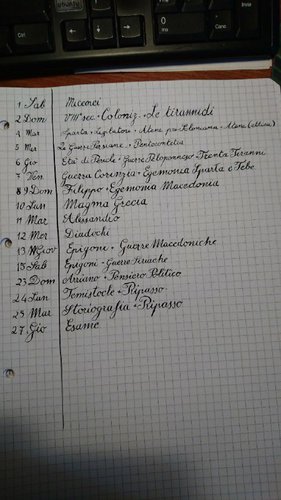 Alt Gr
Ctrl
Canc
Fine
0
Ins
1 Sab Micenei
2 Dom VIII sec. Coloniz. Le tirannidi
4 Mar Sparta + Legislatori + Atene pre-Soloniana + Atene
5 Mer Le Guerre Persiane + Pentecontetia
6 Gio Età di Pericle + Guerra Peloponneso Trenta Tiranni
7 Ven Guerra Corinzia + Egemonia Sparta e Tebe
8 9 Dom Filippo + Egemonia Macedonia
10 Lun Magna Grecia
11 Mar Alessandro
12 Mer Diadochi
13 Giov Epigoni + Guerre Macedoniche
15 Sab Epigoni + Guerre Siriache
23 Dom Arriano + Pensiero Politico
24 Lun Temistocle + Ripasso
25 Mar Storiografia + Ripasso
27 Gio Esame